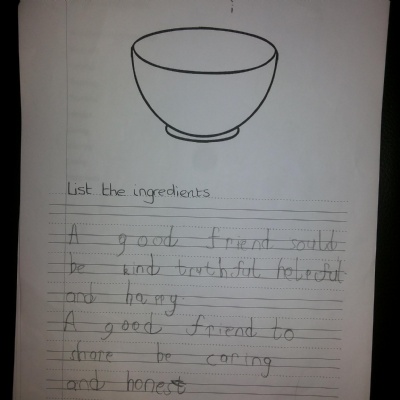 List the ingredients
A good friend sould
be kind truthful helecful
and haeey
A good friend to
shore be caring
and honest